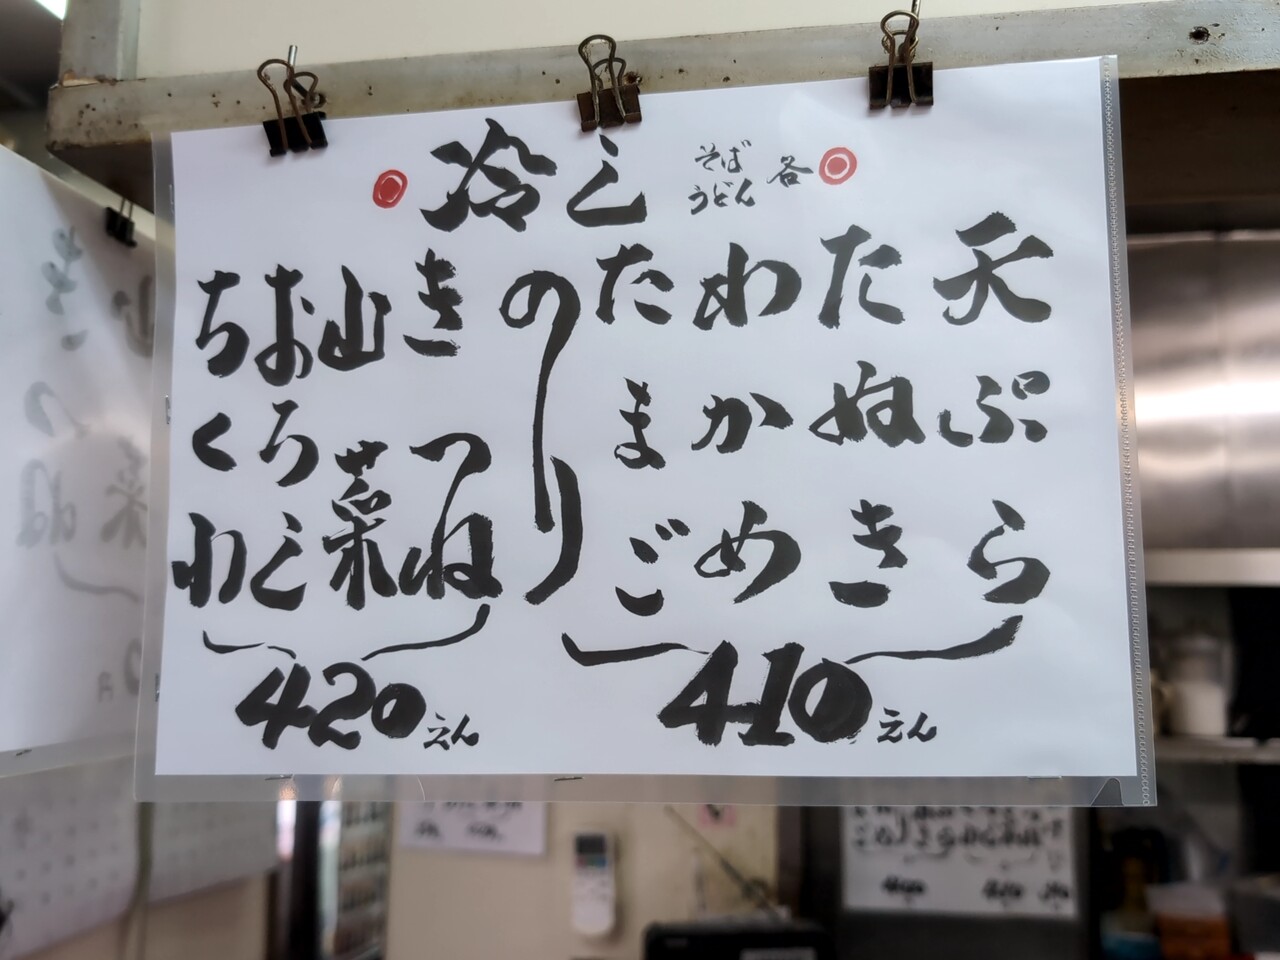 冷し
そば
うどん
各
天ぷら
たぬき
わかめ
たまご
のり
410えん
きつね
山菜
おろし
ちくわ
420えん